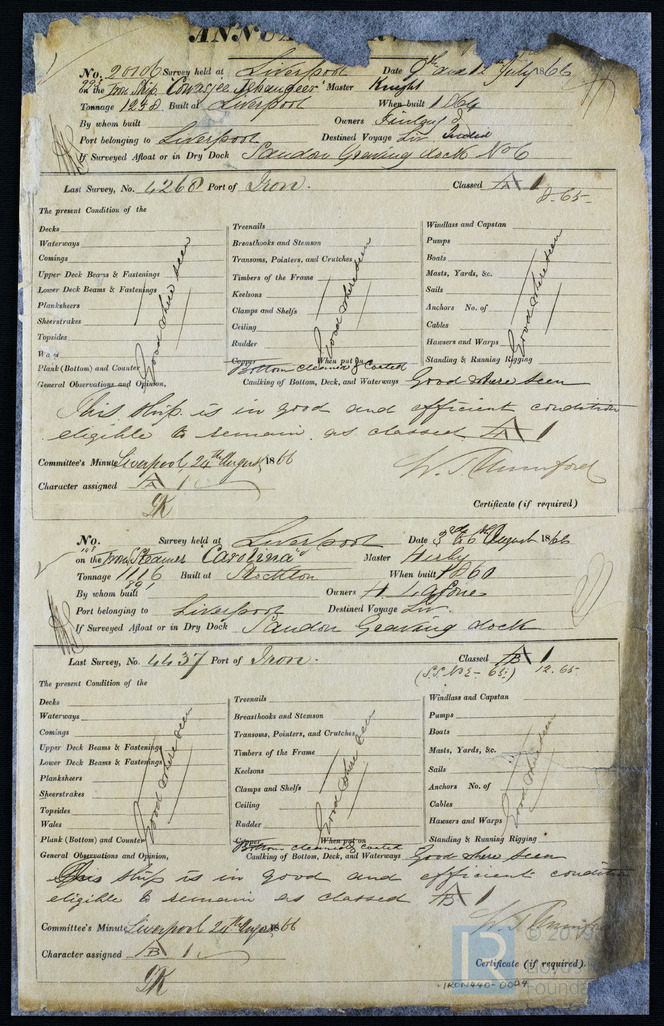 ANNU
No. 20106 Survey held at Liverpool Date 9th and 12th July 1866
on the Iron Ship "Cowasjee Jehangeer" Master Knight
Tonnage 1248 Built at Liverpool When built 1864
By whom built Owners Finlay &
Port belonging to Liverpool Destined Voyage Liv.
If Surveyed Afloat or in Dry Dock Sandon Graving dock No 6
Last Survey, No. 4268 Port of Iron. Classed A 1
8.65
The present Condition of the
Decks
Waterways
Comings
Upper Deck Beams & Fastenings
Lower Deck Beams & Fastenings
Planksheers
Sheerstrakes
Topsides
Wales
Plank (Bottom) and Counter
Good where seen
Treenails
Breasthooks and Stemson
Transoms, Pointers, and Crutches
Timbers of the Frame
Keelsons
Clamps and Shelfs
Ceiling
Rudder
Copper When put on
Good where seen
Bottom cleaned & Coated
Windlass and Capstan
Pumps
Boats
Masts, Yards, &c.
Sails
Anchors No. of
Cables
Hawsers and Warps
Standing & Running Rigging
Good where seen
General Observations and Opinion, Caulking of Bottom, Deck, and Waterways Good where seen
This Ship is in good and efficient condition
eligible to remain as classed A 1
Committee's Minute Liverpool, 24th August, 1866
W. T. Mumford
Character assigned A 1
Certificate (if required)
No. Survey held at Liverpool Date 3rd & 6th August 1866
on the Iron Steamer "Carolina" Master Kirby
Tonnage 1116 Built at Stockton When built 1860
891
By whom built Owners H. Lafone
Port belonging to Liverpool Destined Voyage Liv.
If Surveyed Afloat or in Dry Dock Sandon Graving dock
Last Survey, No. 4437 Port of Iron. Classed B 1
(S.S. No 2 - 65) 12.65
The present Condition of the
Decks
Waterways
Comings
Upper Deck Beams & Fastenings
Lower Deck Beams & Fastenings
Planksheers
Sheerstrakes
Topsides
Wales
Plank (Bottom) and Counter
Good where seen
Treenails
Breasthooks and Stemson
Transoms, Pointers, and Crutches
Timbers of the Frame
Keelsons
Clamps and Shelfs
Ceiling
Rudder
Copper When put on
Good where seen
Bottom cleaned & coated
Windlass and Capstan
Pumps
Boats
Masts, Yards, &c.
Sails
Anchors No. of
Cables
Hawsers and Warps
Standing & Running Rigging
Good where seen
General Observations and Opinion, Caulking of Bottom, Deck, and Waterways Good where seen
This Ship is in good and efficient condition
eligible to remain as classed B 1
Committee's Minute Liverpool 24th August 1866
Character assigned B 1
Certificate (if required).
IRON440-0009
LR